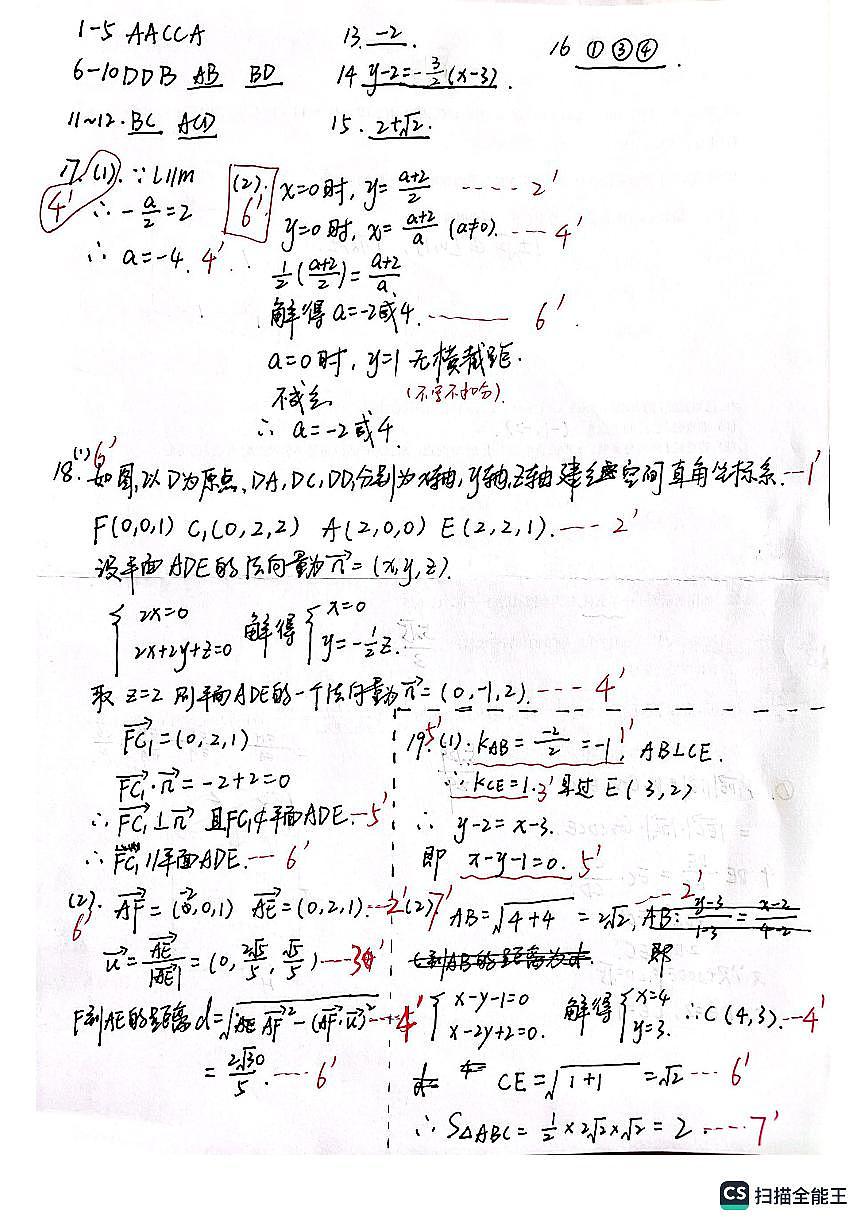 1-5 AACCA
6-10 DDB AB BD
11~12. BC ACD
13. -2.
14 y-2=-3/2(x-3).
15. 2+√2.
16 ①③④.
17.(1). ∵ L∥m
4'
∴ -a/2=2
∴ a=-4. 4'
(2). 6'
x=0时, y=(a+2)/2 ---- 2'
y=0时, x=(a+2)/a (a≠0). --- 4'
1/2((a+2)/2)=(a+2)/a
解得a=-2或4. —— 6'
a=0时, y=1 无横截距.
不成立 (不写不扣分).
∴ a=-2或4.
18.(1) 6' 如图,以D为原点、DA,DC,DD₁分别为x轴,y轴,z轴建立空间直角坐标系.—1'
F(0,0,1) C₁(0,2,2) A(2,0,0) E(2,2,1).--- 2'
设平面ADE的法向量为n⃗=(x,y,z).
{2x=0 解得{x=0
2x+2y+z=0 y=-1/2z.
取 z=2 则平面ADE的一个法向量为n⃗=(0,-1,2).--- 4'
FC₁⃗=(0,2,1)
FC₁⃗·n⃗=-2+2=0
∴ FC₁⃗⊥n⃗ 且FC₁⊄平面ADE.—5'
∴ FC₁∥平面ADE.— 6'
(2). 6' AF⃗=(-2,0,1) AE⃗=(0,2,1).—2'
u⃗=AE⃗/|AE⃗|=(0,2√5/5,√5/5)—3'
F到AE的距离d=√(AF⃗²-(AF⃗·u⃗)²)—4'
=2√30/5.--- 6'
19.(1). 5' K_AB=-2/2=-1, 1' AB⊥CE.
∴ K_CE=1. 3' 且过E(3,2)
∴ y-2=x-3.
即 x-y-1=0. 5'
(2) 7' AB=√(4+4)=2√2, --- 2' AB: (y-3)/(1-3)=(x-2)/(4-2)
即
{x-y-1=0 解得{x=4 ∴C(4,3).—4'
x-2y+2=0. y=3.
CE=√(1+1)=√2 --- 6'
∴ S△ABC=1/2×2√2×√2=2 ---- 7'
CS 扫描全能王